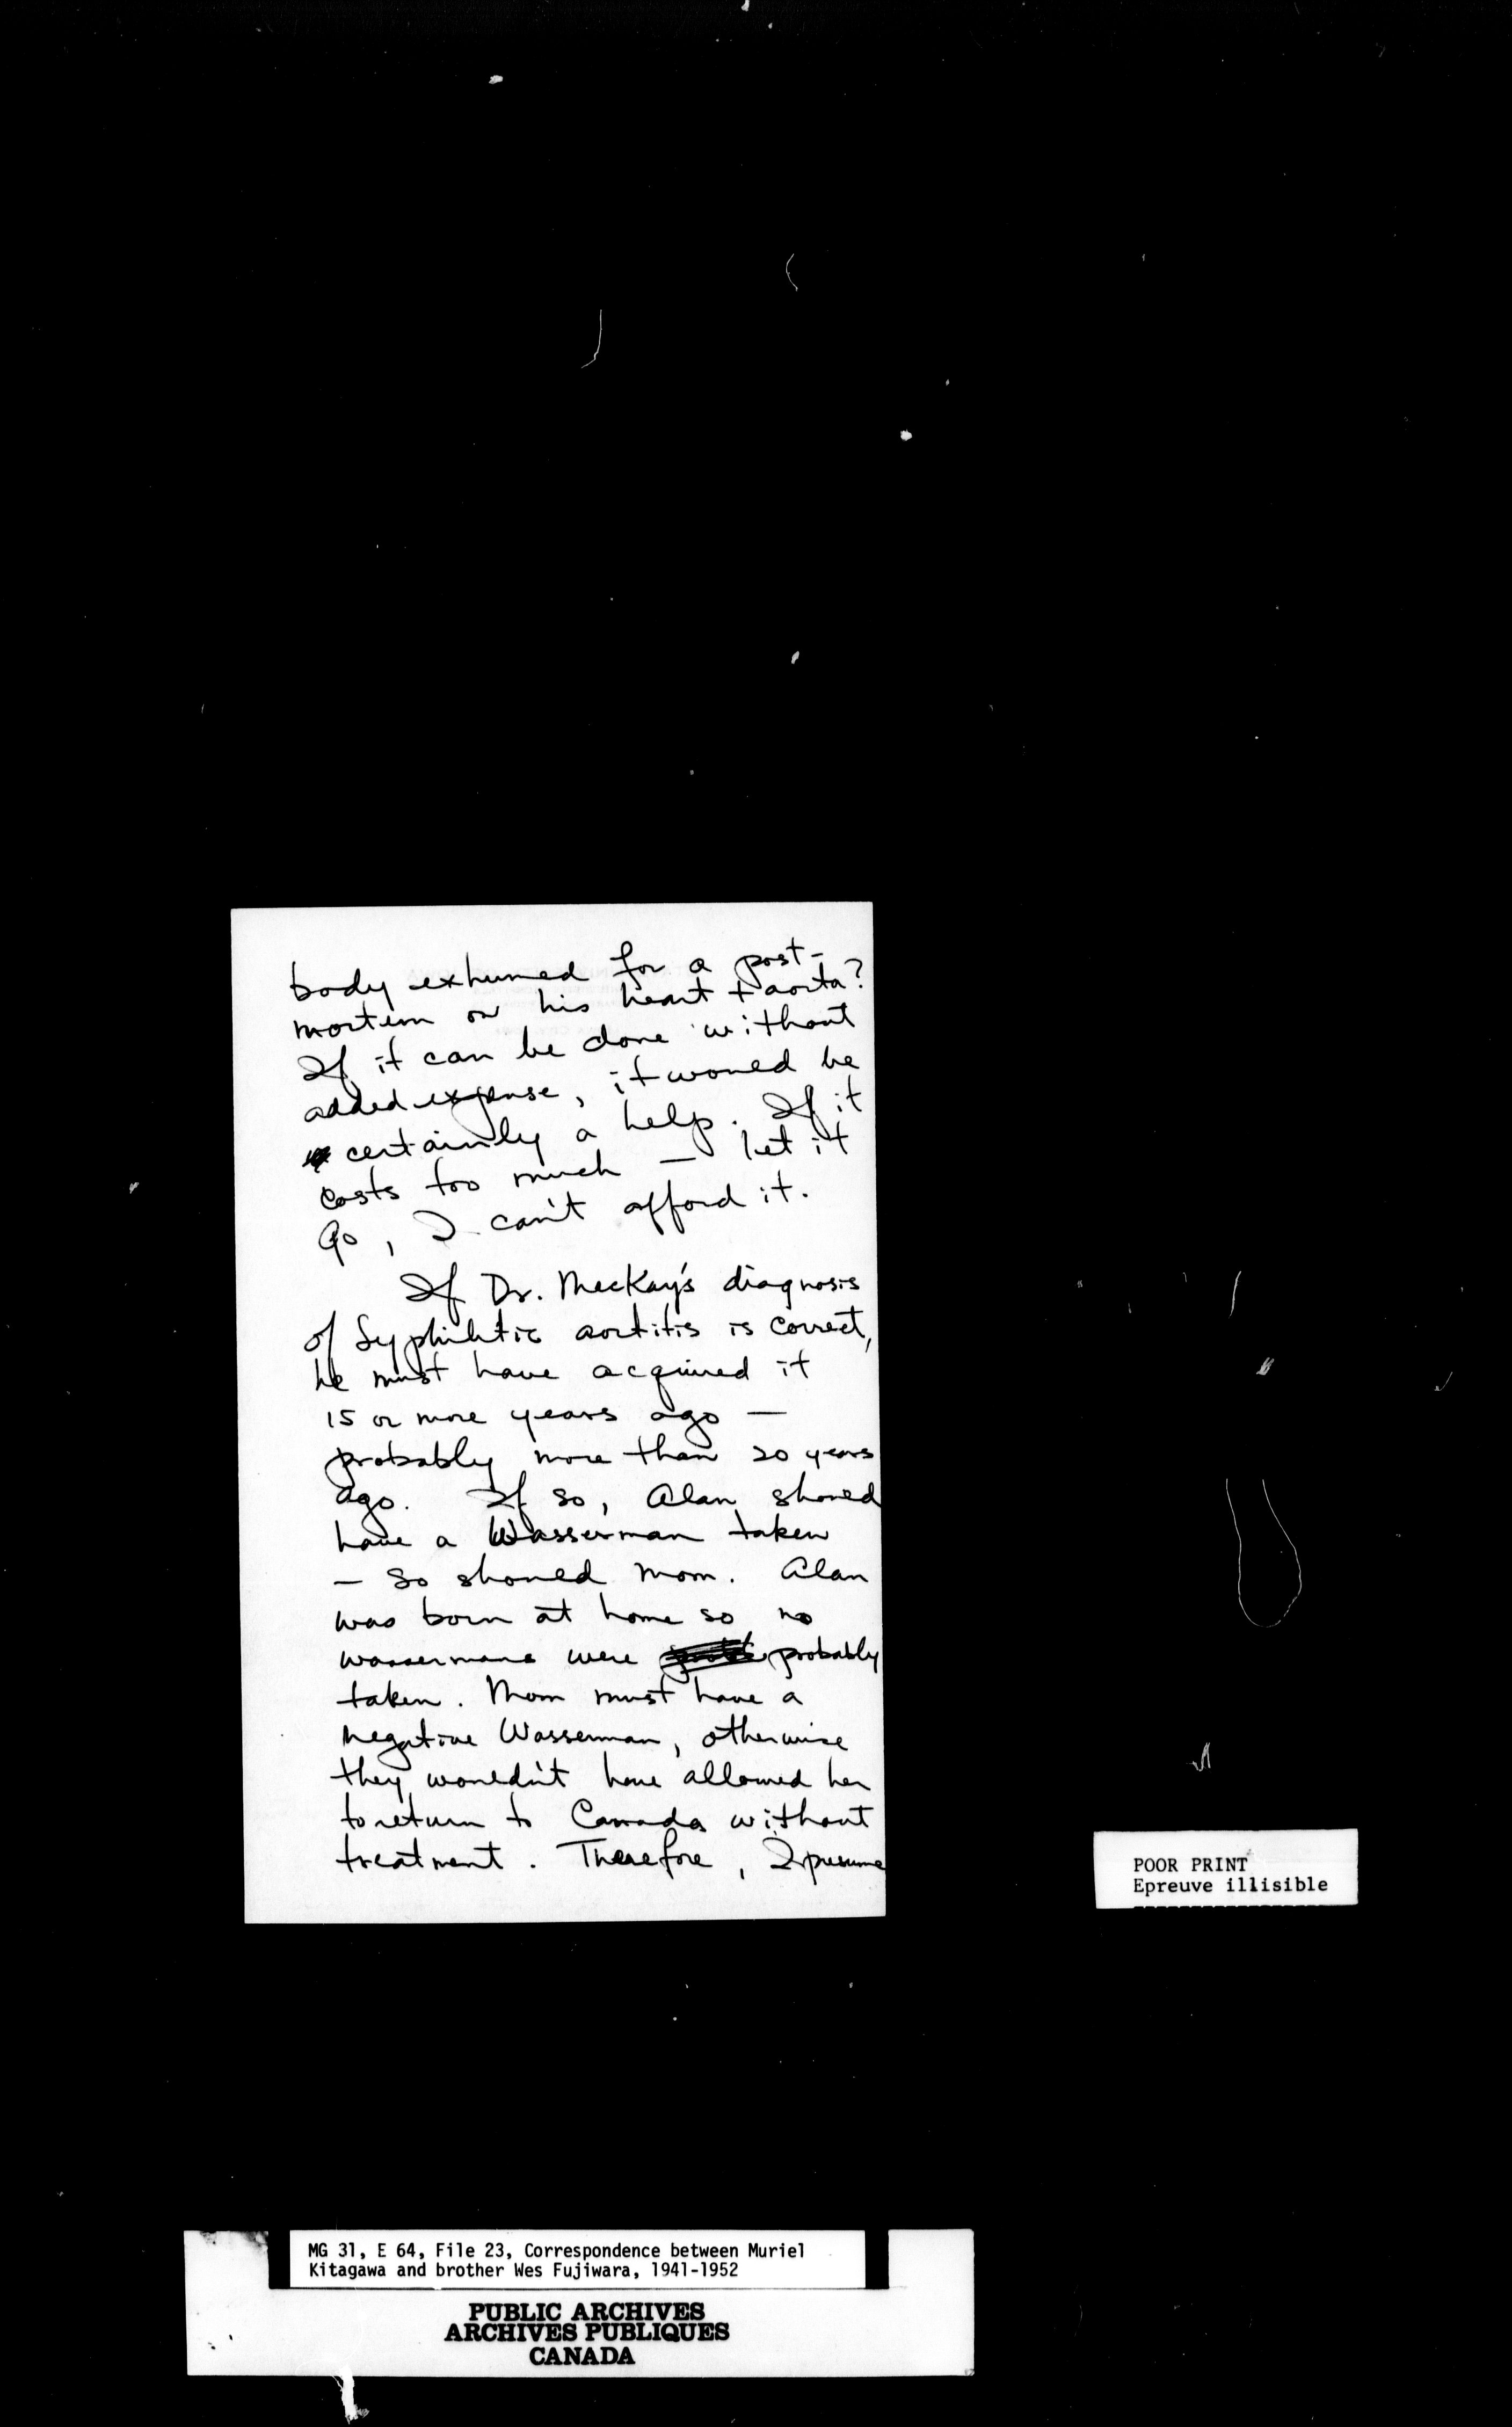 body exhumed for a post-
mortem on his heart + aorta?
If it can be done without
added expense, it would be
certainly a help. If it
costs too much — let it
go, I can't afford it.
If Dr. MacKay's diagnosis
of Syphilitic aortitis is correct,
he must have acquired it
15 or more years ago —
probably more than 20 years
ago. If so, Alan should
have a Wasserman taken
— so should mom. Alan
was born at home so no
wassermans were probably
taken. Mom must have a
negative Wasserman, otherwise
they wouldn't have allowed her
to return to Canada without
treatment. Therefore, I presume
POOR PRINT
Epreuve illisible
MG 31, E 64, File 23, Correspondence between Muriel
Kitagawa and brother Wes Fujiwara, 1941-1952
PUBLIC ARCHIVES
ARCHIVES PUBLIQUES
CANADA